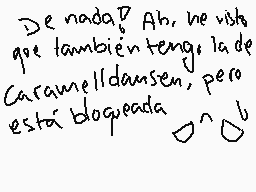 De nada! Ah, he visto
que también tengo la de
Caramelldansen, pero
está bloqueada